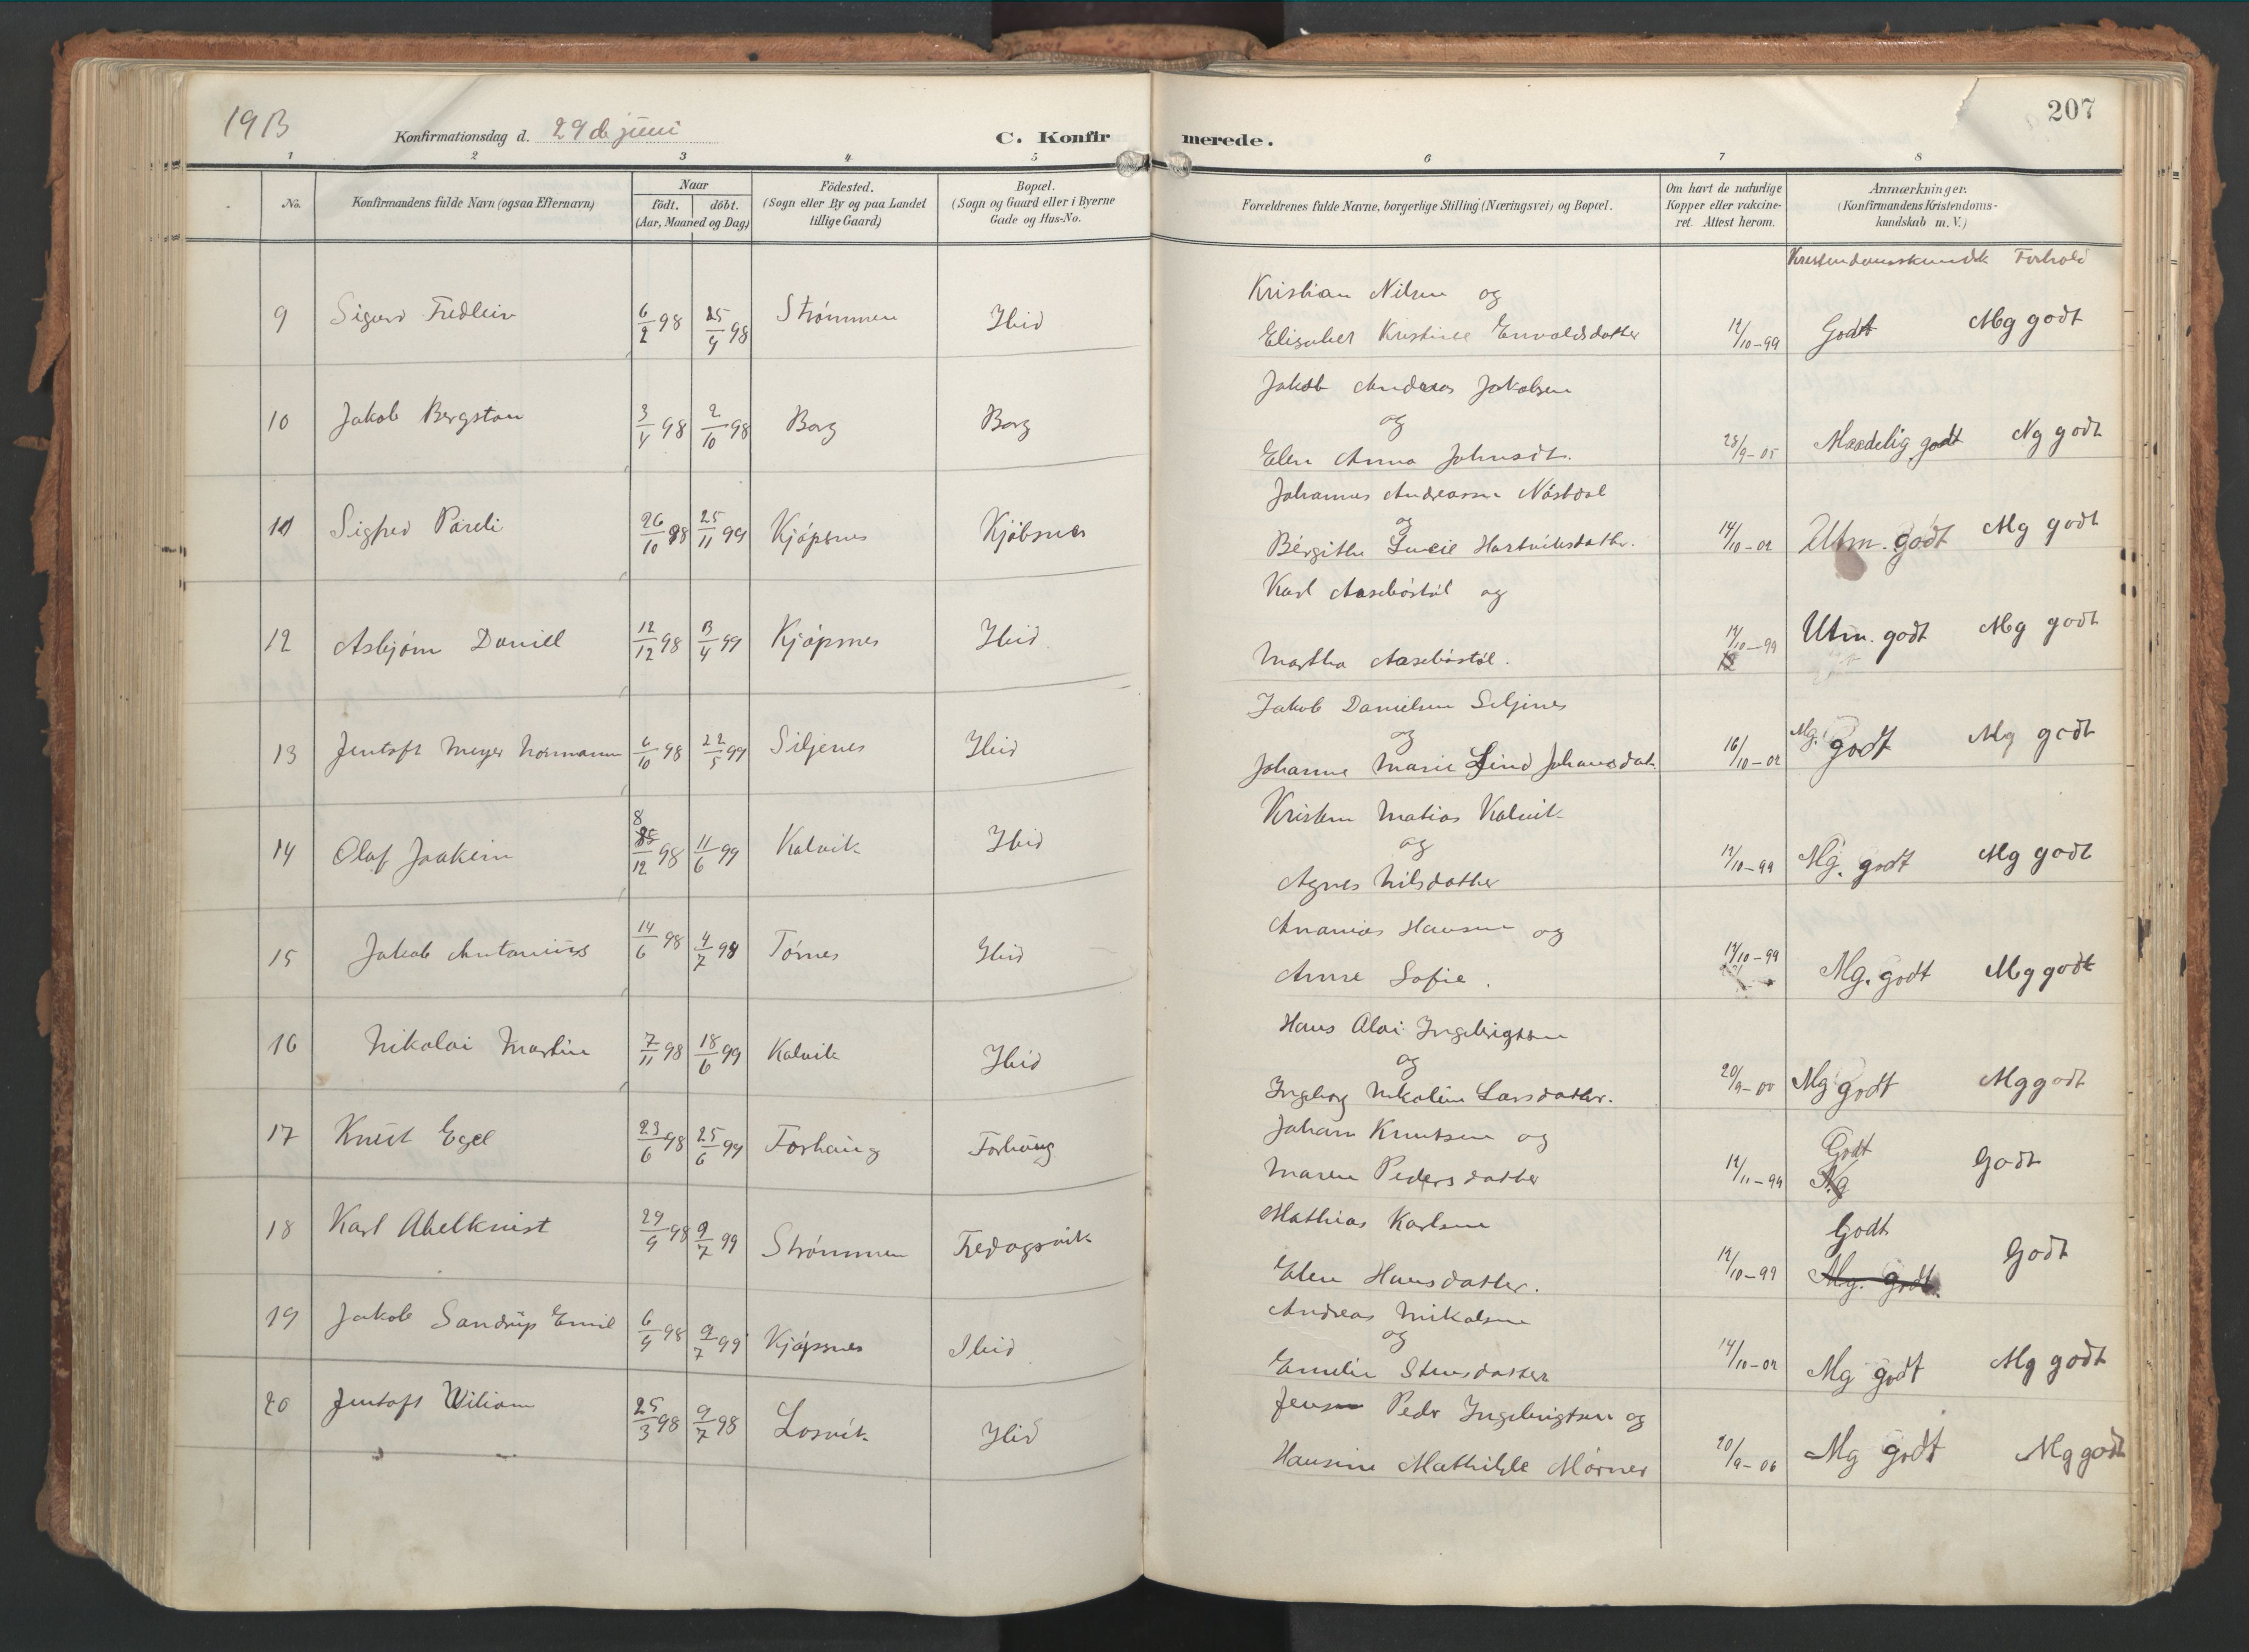 1913
Konfirmationsdag d. 29 de juni
C. Konfirmerede.
207
1 2 3 4 5 6 7 8
No.
Konfirmandens fulde Navn (ogsaa Efternavn)
Naar
födt. döbt.
(Aar, Maaned og Dag)
Födested.
(Sogn eller By og paa Landet
tillige Gaard)
Bopæl.
(Sogn og Gaard eller i Byerne
Gade og Hus-No.
Forældrenes fulde Navne, borgerlige Stilling (Næringsvei) og Bopæl.
Om havt de naturlige
Kopper eller vakcine-
ret. Attest herom.
Anmærkninger.
(Konfirmandens Kristendoms-
kundskab m. V.)
Kristendomskundsk Forhold
Kristian Nilsen og
9 Sigurd Fredleiv 6/2 98 25/4 98 Strømmen Ibid
Elisabet Kristine Envoldsdatter 14/10-99 Godt Mg godt
Jakob Andreas Jakobsen
10 Jakob Bergston 3/4 98 2/10 98 Borg Borg
og
Elen Anna Johnsdt. 28/9-05 Maadelig godt Ng godt
Johannes Andreassen Nástdal
11 Sigfred Pareli 26/10 98 25/11 99 Kjøpsnes Kjøbsnes
og
Bergithe Lucie Hartviksdatter. 14/10-02 Utm. godt Mg godt
Karl Aasebøstøl og
12 Asbjørn Daniel 12/12 98 3/4 99 Kjøpsnes Ibid
Martha Aasebøstøl. 14/10-99 Utm. godt Mg godt
Jakob Danielsen Siljenes
13 Jentoft Meyer Normann 6/10 98 22/5 99 Siljenes Ibid
og
Johanne Marie Lind Johansdat. 16/10-02 Mg. godt Mg godt
Kristen Matias Kalvik
14 Olaf Joakim 8 25/12 98 11/6 99 Kalvik Ibid
og
Agnes Nilsdatter 14/10-99 Mg. godt Mg godt
Ananias Hansen og
15 Jakob Antonius 14/6 98 4/7 98 Tørnes Ibid
Anne Sofie. 14/10-99 Mg. godt Mg godt
Hans Alai Ingebrigtsen
16 Nikolai Martin 7/11 98 18/6 99 Kalvik Ibid
og
Ingeborg Nikoline Larsdatter. 20/9-00 Mg godt Mg godt
Johan Knutsen og
17 Knut Egel 23/6 98 25/6 99 Forhaug Forhaug
Maren Pedersdatter 14/11-99 Godt Ng Godt
Mathias Karlsen
18 Karl Abelkvist 29/9 98 9/7 99 Strømmen Fredagsvik
Elen Hansdatter. 14/10-99 Godt Mg. godt. Godt
Andreas Nikolsen
19 Jakob Sandrup Emil 6/9 98 9/7 99 Kjøpsnes Ibid
og
Emelie Stensdatter 14/10-02 Mg godt Mg godt
Jens Peder Ingebrigtsen og
20 Jentoft Viliam 25/3 98 9/7 98 Losvik Ibid
Hansine Mathilde Mörner 20/9-06 Mg godt Mg godt